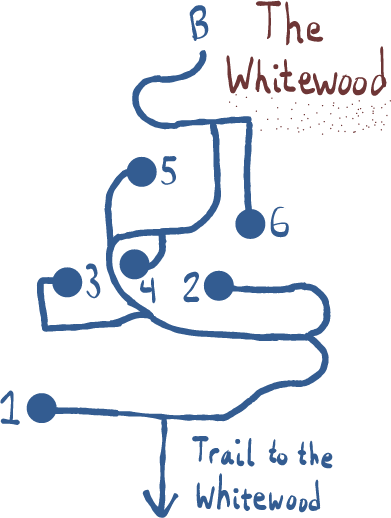 B
The
Whitewood
5
6
3
4
2
1
Trail to the
Whitewood